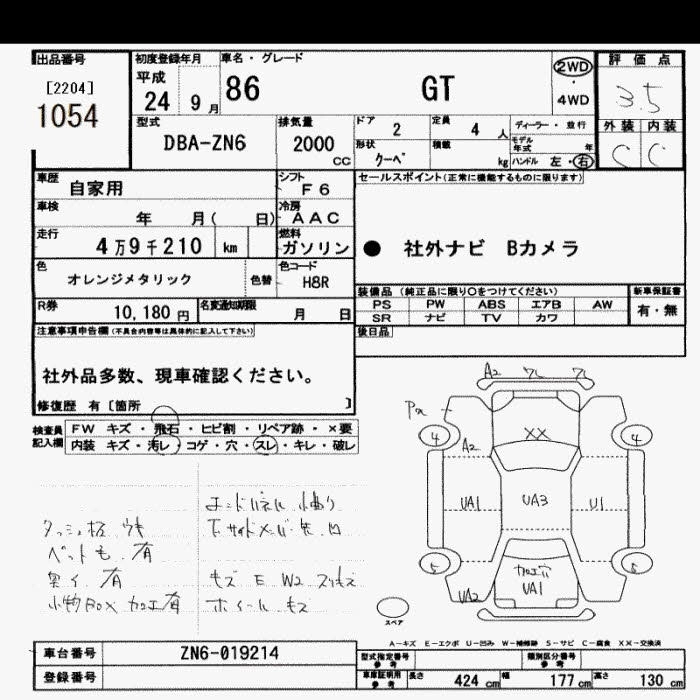 出品番号 初度登録年月 車名・グレード 評価点
[2204] 平成 86 GT 2WD ・ 4WD 3.5
1054 24 9月
型式 排気量 ドア 定員 ディーラー・並行 外装 内装
DBA-ZN6 2000 cc 2 4人 モデル年式 年 C C
形状 積載
クーペ kg ハンドル 左・右
車歴 自家用 シフト F6 セールスポイント(正常に機能するものに限ります)
車検 年 月( 日) 冷房 AAC
走行 4万9千210 km 燃料 ガソリン ● 社外ナビ Bカメラ
色 オレンジメタリック 色替 色コード H8R
装備品 (純正品に限り○をつけてください) 新車保証書
R券 10,180円 名変通知期限 月 日 PS PW ABS エアB AW 有・無
SR ナビ TV カワ
注意事項申告欄(不具合内容等は具体的に記入して下さい) 後日品
社外品多数、現車確認ください。
修復歴 有 [箇所 ]
検査員記入欄 FW キズ・飛石・ヒビ割・リペア跡・×要
内装 キズ・汚レ・コゲ・穴・スレ・キレ・破レ
A2
4 4
A2 XX
UA1 UA3 U1
5 5
加工穴
UA2 UA1
エンドパネル 小曲り
ダッシュ板 ウキ 下サイドメンバー 先 凹
ペットモ 有
臭イ 有 キズ E W2 スリキズ
小物BOX 加工有 ホイール キズ
スペア
A−キズ E−エクボ U−凹み W−補修跡 S−サビ C−腐食 XX−交換済
車台番号 ZN6-019214 型式指定番号 参考 類別区分番号 参考
登録番号 車庫証明用 参考 長さ 424 cm 幅 177 cm 高さ 130 cm